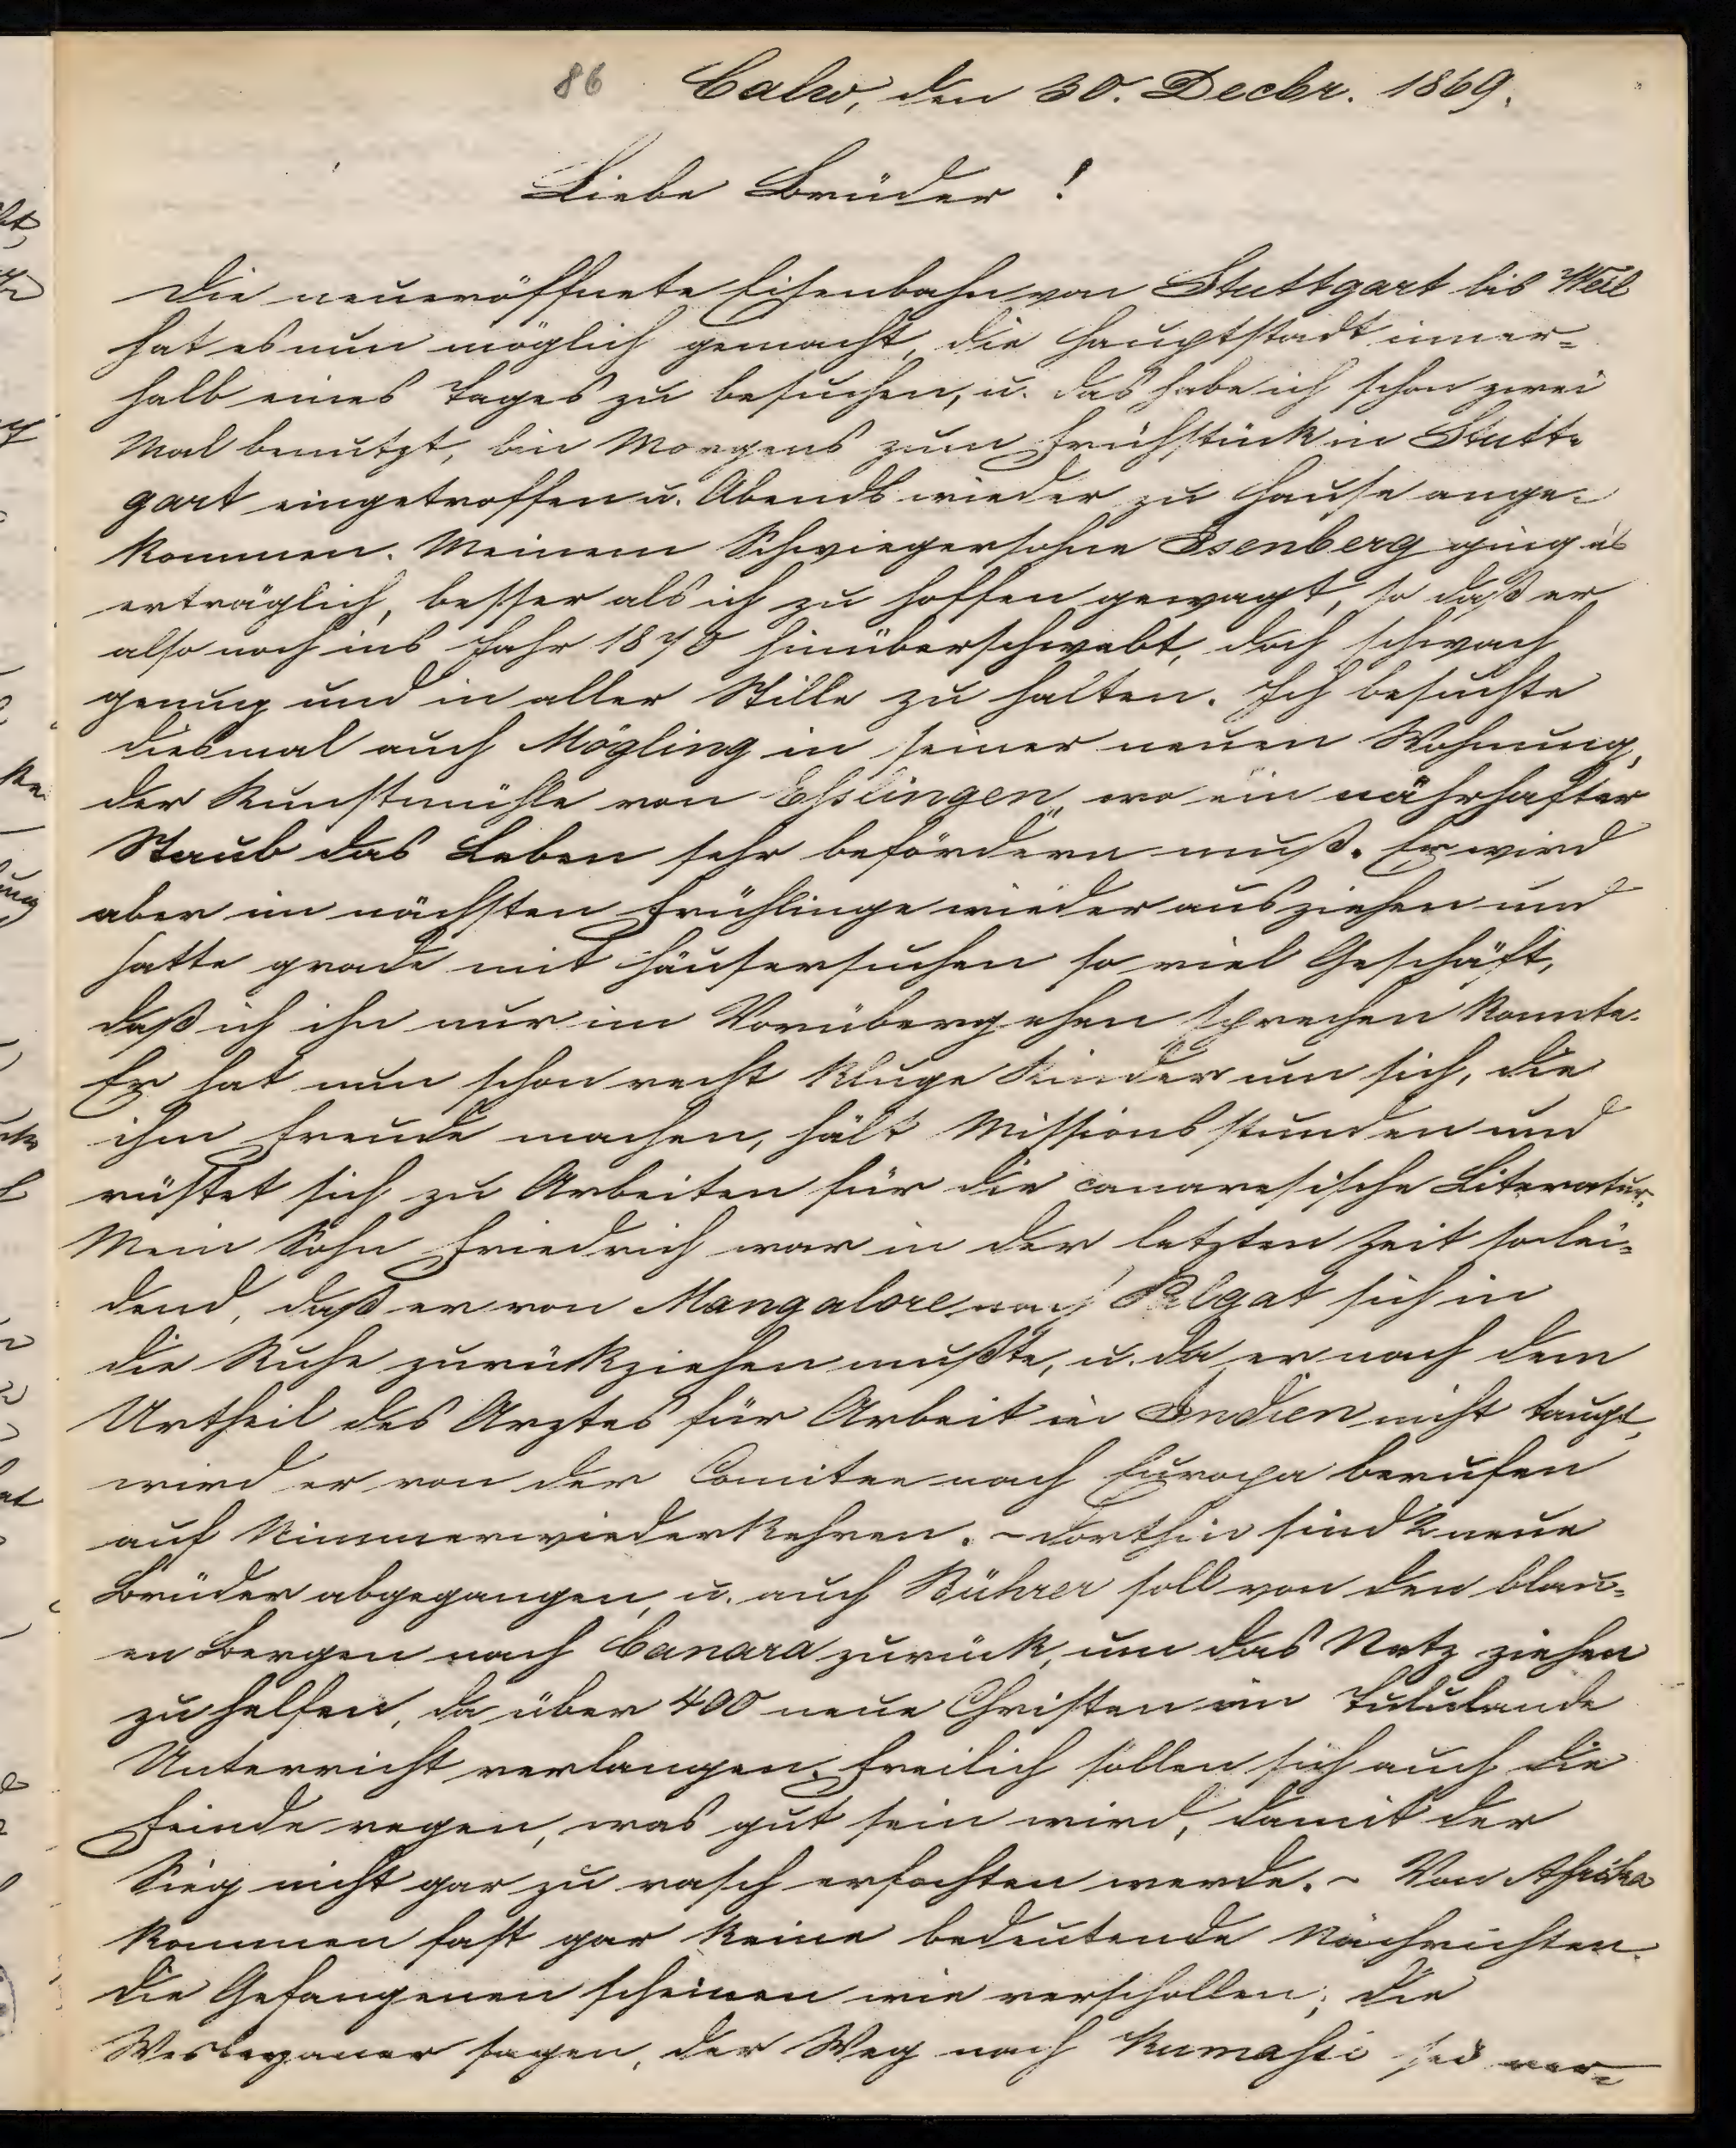 86 Calw, den 30. Decbr. 1869.
Liebe Brüder!
Die neueröffnete Eisenbahn von Stuttgart bis Weil
hat es nun möglich gemacht, die Hauptstadt inner-
halb eines Tages zu besuchen, u. das habe ich schon zwei
Mal benutzt, bin Morgens zum Frühstück in Stutt-
gart eingetroffen u. Abends wieder zu Hause ange-
kommen. Meinem Schwiegersohne Isenberg ging es
erträglich, besser als ich zu hoffen gewagt, so daß er
also noch ins Jahr 1870 hinüberschwebt, doch schwach
genug und in aller Stille zu halten. Ich besuchte
diesmal auch Mögling in seiner neuen Wohnung,
der Kunstmühle von Eßlingen, wo ein nährhafter
Staub das Leben sehr befördern muß. Er wird
aber im nächsten Frühlinge wieder ausziehen und
hatte grade mit Häusersuchen so viel Geschäft,
daß ich ihn nur im Vorübergehen sprechen konnte.
Er hat nun schon recht kluge Kinder um sich, die
ihm Freude machen, hält Missionsstunden und
rüstet sich zu Arbeiten für die canaresische Literatur.
Mein Sohn Friedrich war in der letzten Zeit so lei-
dend, daß er von Mangalore nach Palgat sich in
die Ruhe zurückziehen mußte, u. da er nach dem
Urtheil des Arztes für Arbeit in Indien nicht taugt,
wird er von der Comitee nach Europa berufen
auf Nimmerwiederkehren. - Dorthin sind 2 neue
Brüder abgegangen, u. auch Bührer soll von den blau-
en Bergen nach Canara zurück, um das Netz ziehen
zu helfen, da über 400 neue Christen im Tululande
Unterricht verlangen. Freilich sollen sich auch die
Feinde regen, was gut sein wird, damit der
Sieg nicht gar zu rasch erfochten werde. - Von Afrika
kommen fast gar keine bedeutende Nachrichten.
Die Gefangenen scheinen wie verschollen; die
Wesleyaner sagen, der Weg nach Kumassi sei ver-